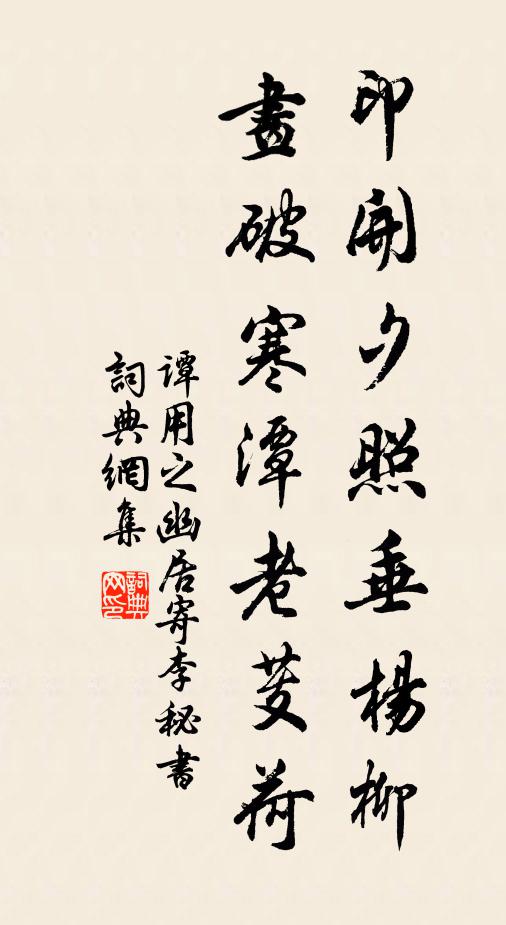 印開夕照垂楊柳
畫破寒潭老芰荷
譚用之幽居寄李秘書
詞典網集
詞典
网印